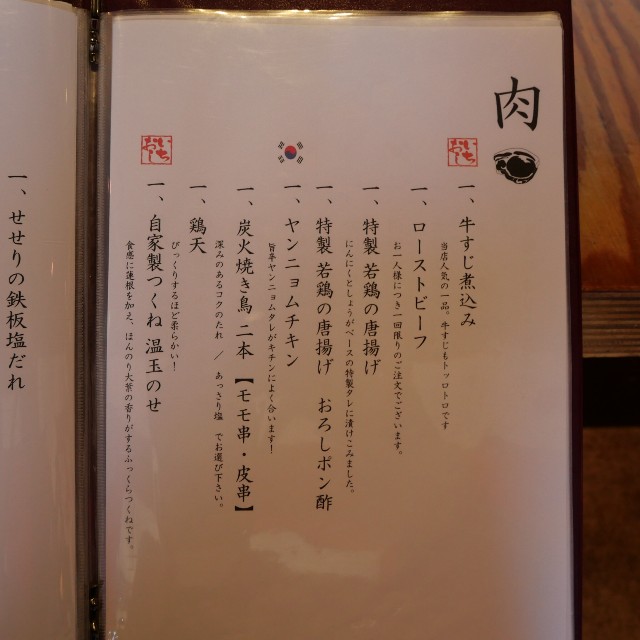 肉
いちおし
一、牛すじ煮込み
当店人気の一品。牛すじもトッロトロです
一、ローストビーフ
お一人様につき一回限りのご注文でございます。
一、特製 若鶏の唐揚げ
にんにくとしょうがベースの特製タレに漬けこみました。
一、特製 若鶏の唐揚げ おろしポン酢
一、ヤンニョムチキン
旨辛ヤンニョムタレがチキンによく合います!
一、炭火焼き鳥 二本 【モモ串・皮串】
深みのあるコクのたれ / あっさり塩 でお選び下さい。
一、鶏天
びっくりするほど柔らかい!
いちおし
一、自家製つくね 温玉のせ
食感に蓮根を加え、ほんのり大葉の香りがするふっくらつくねです。
一、せせりの鉄板塩だれ